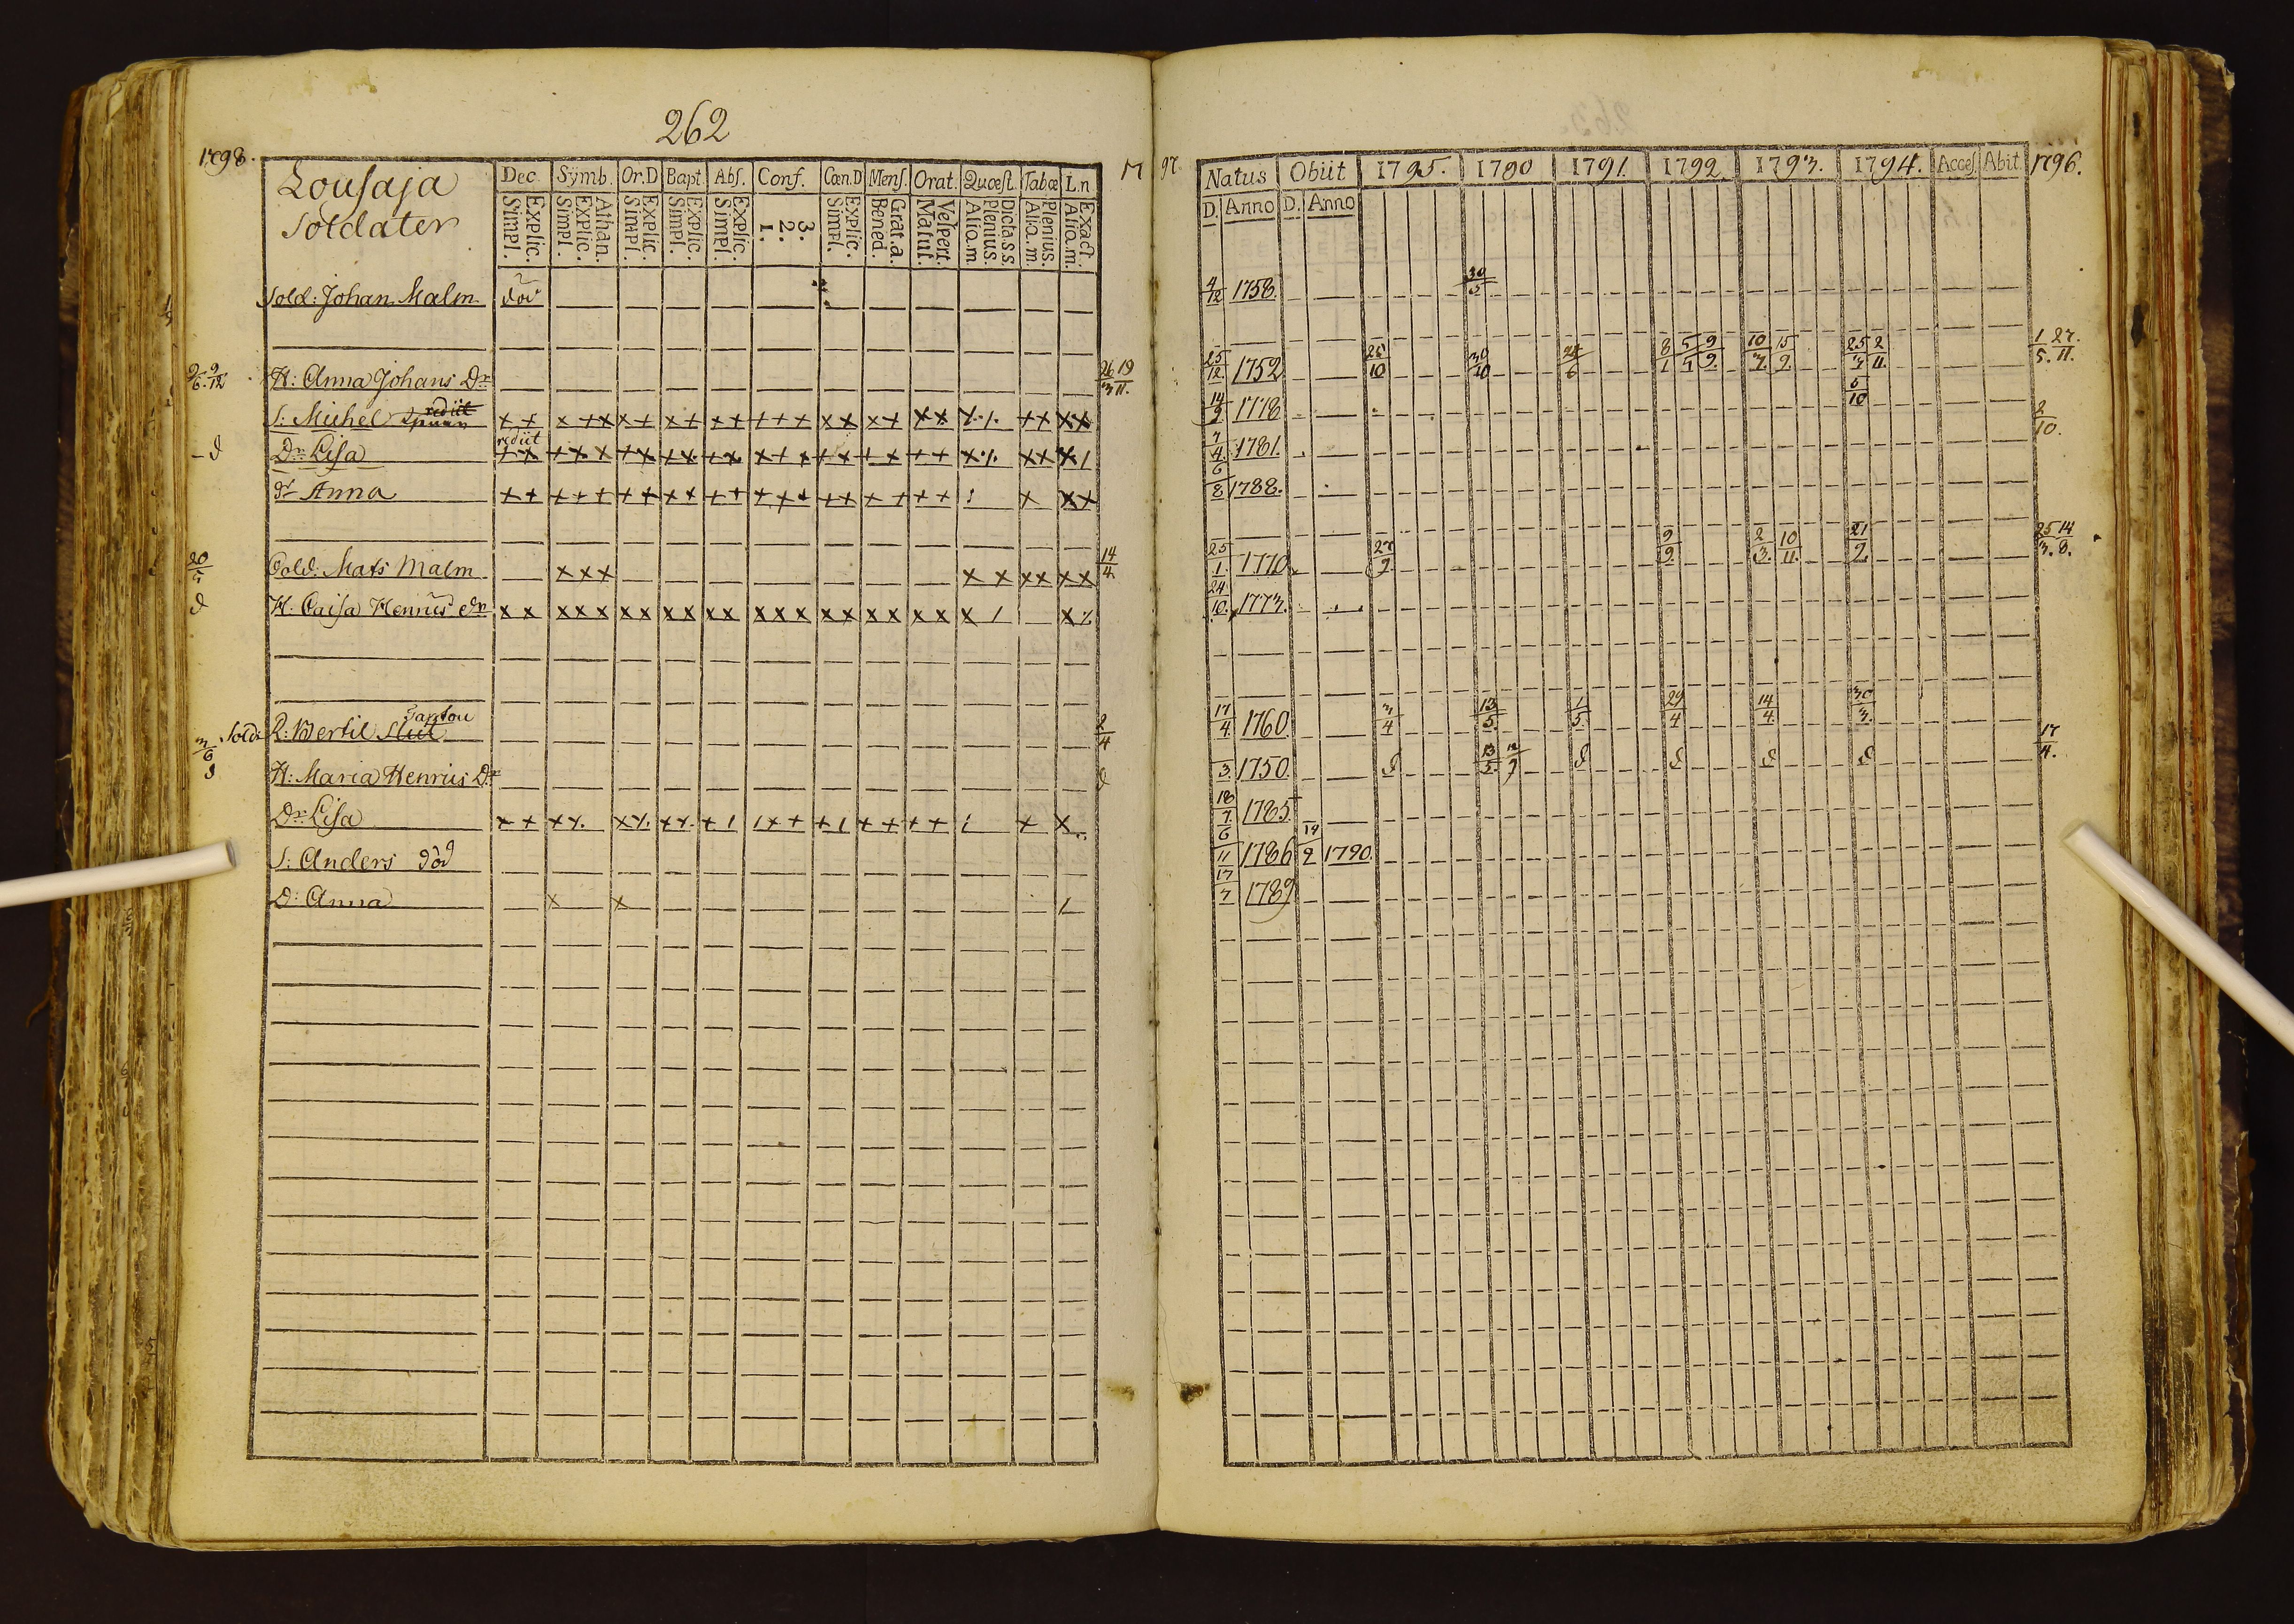 262
1798.
Lousaja
Soldater
Dec. Symb. Or.D Bapt. Abs. Conf. Cœn.D Mens. Orat. Quœst. Tabœ L.n
Explic. Simpl. Athan. Explic. Simpl. Explic. Simpl. Explic. Simpl. Explic. Simpl. 3. 2. 1. Explic. Simpl. Grat.a. Bened. Vespert. Matut. Dicta.s.s. Plenius. Aliq.m. Plenius. Aliq.m. Exact. Aliq.m.
Sold: Johan Malm död
H: Anna Johans Dr
S: Michel rediit
rediit
Dr Lisa
dr Anna
Sold. Mats Malm
H: Caisa Henrics dr
Sold: R: Bertil
H: Maria Henrics Dr
Dr Lisa
S: Anders död
D: Anna
17 97.
Natus Obiit 1795. 1790 1791. 1792. 1793. 1794. Acces. Abit. 1796.
D. Anno D. Anno
4/12 1758. 30/5
25/12 1752 25/10 30/10 8/1 5/4 9/9. 10/3. 15/9. 25/3 2/11. 1/5. 27./11.
14/9 1778 5/10 2/10.
7/4. 1781.
6/8 1788.
25/1 1770. 27/9 9/9. 2/3. 10/11. 21/9. 25/3. 14/8.
24/10. 1773.
17/4. 1760. 3/4 13/5. 1/5. 29/4 14/4. 30/3. 17/4.
3. 1750. d 13/5. d d d d
18/7. 1785
6/11 1786 19/9 1790.
17/7 1789